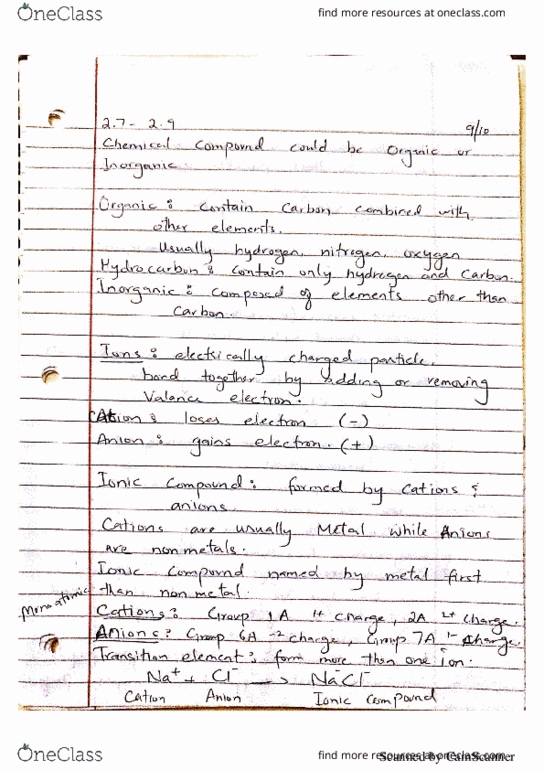 OneClass
find more resources at oneclass.com
2.7 - 2.9
9/10
Chemical compound could be Organic or
Inorganic
Organic : contain Carbon combined with
other elements.
Usually hydrogen, nitrogen, oxygen
Hydrocarbon : contain only hydrogen and Carbon.
Inorganic : composed of elements other than
Carbon.
Ions : electrically charged particle.
bond together by adding or removing
Valance electron.
Cation : loses electron (-)
Anion : gains electron. (+)
Ionic Compound : formed by Cations &
anions.
Cations are usually Metal while Anions
are nonmetals.
Ionic Compound named by metal first
than non metal.
Monoatomic
Cations : Group 1A 1+ charge, 2A 2+ charge.
Anions : Group 6A -2 charge, Group 7A 1- charge.
Transition element : form more then one ion.
Na+ + Cl- -> NaCl-
Cation Anion Ionic Compound
OneClass
find more resources at oneclass.com
Scanned by CamScanner